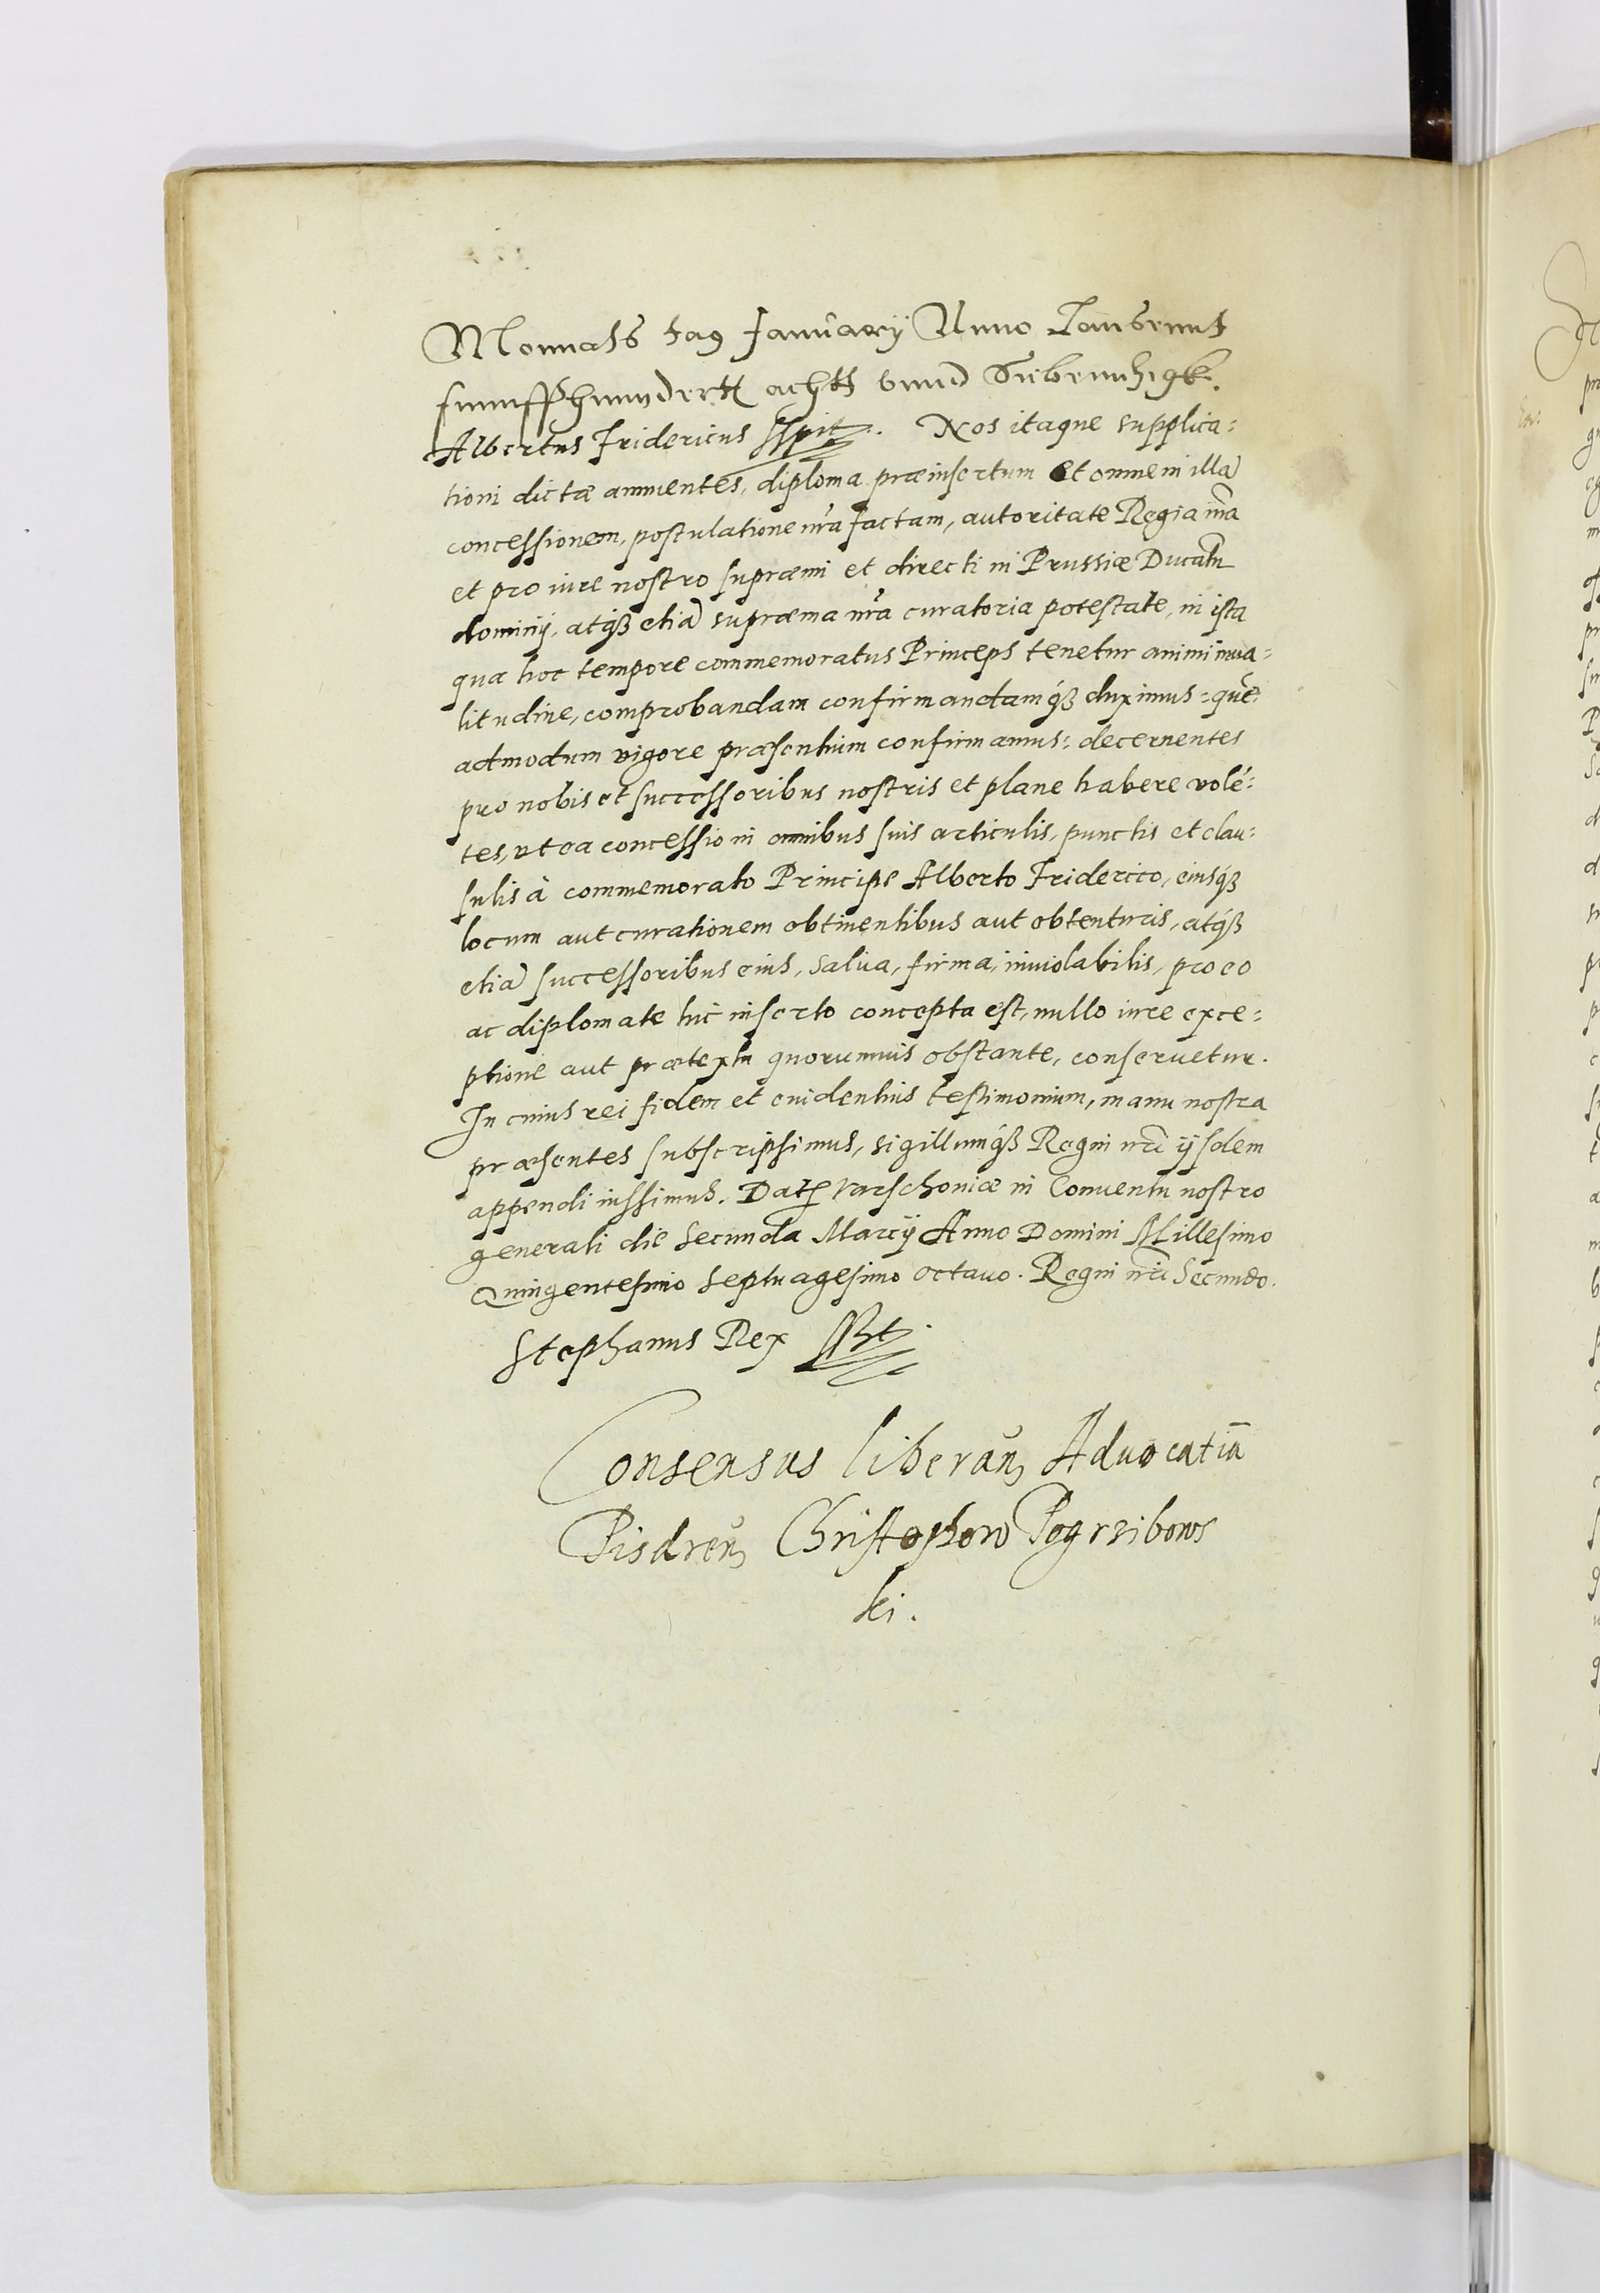 Monnats tag January Anno Tausennt
funnffhunndertt achtt vnnd Siebennzigk.
Albertus Fridericus sspt. Nos itaque supplica=
tioni dictæ annuentes, diploma præinsertum et omnem illã
concessionem, postulatione nr̃a factam, autoritate Regia nr̃a
et pro iure nostro supræmi et directi in Prussiæ Ducatu
dominij, atq́ꝫ etiã supræma nr̃a curatoria potestate, in ista
qua hoc tempore commemoratus Princeps tenetur animi inua=
litudine, comprobandam confirmandamq́ꝫ duximus: quẽ
admodum vigore præsentium confirmamus: decernentes
pro nobis et successoribus nostris et plane habere volẽ=
tes, vt ea concessio in omnibus suis articulis, punctis et clau=
sulis à commemorato Principe Alberto Friderico, eiusq́ꝫ
locum aut curationem obtinentibus aut obtenturis, atq́ꝫ
etiã successoribus eius, salua, firma, inuiolabilis, pro eo
ac diplomate hic inserto concepta est, nullo iure exce=
ptione aut prætextu quorumuis obstante, conseruetur.
In cuius rei fidem et euidentius testimonium, manu nostra
præsentes subscripsimus, sigillumq́ꝫ Regni nr̃i ijsdem
appendi iussimus. Datꝭ Varschouiæ in Conuentu nostro
generali die Secunda Marcij Anno Domini Millesimo
Quingentesimo Septuagesimo octauo. Regni nr̃i Secundo.
Stephanus Rex sspt.
Consensus liberañ Aduocatiã
Pisdreñ Christophoro Pogrzibows
ki.